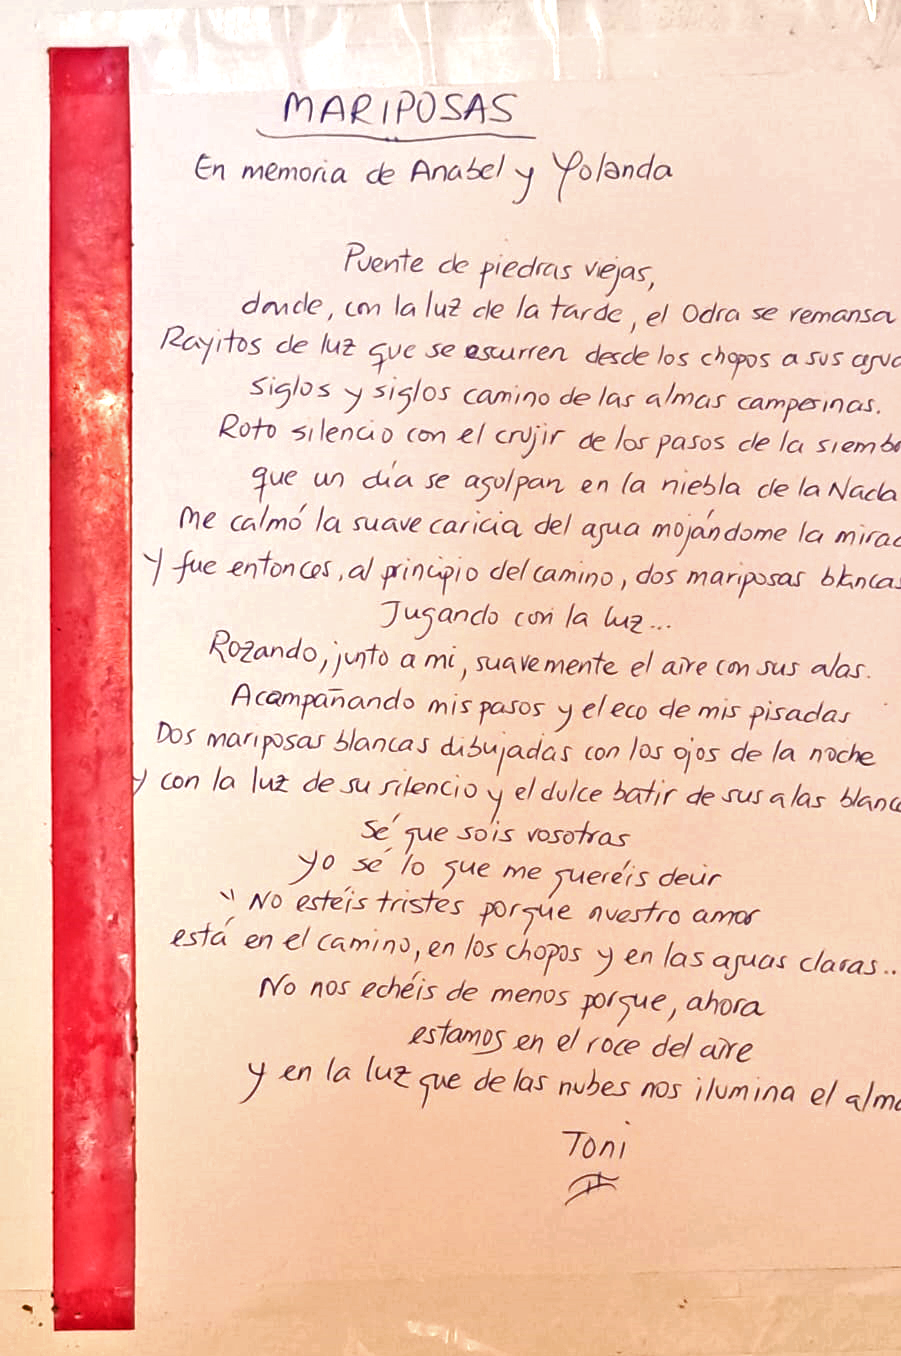 MARIPOSAS
En memoria de Anabel y Yolanda
Puente de piedras viejas,
donde, con la luz de la tarde, el Odra se remansa
Rayitos de luz que se escurren desde los chopos a sus agua
siglos y siglos camino de las almas camperinas.
Roto silencio con el crujir de los pasos de la siemb
que un día se agolpan en la niebla de la Nada
Me calmó la suave caricia del agua mojándome la mirad
Y fue entonces, al principio del camino, dos mariposas blancas
Jugando con la luz...
Rozando, junto a mi, suavemente el aire con sus alas.
Acampañando mis pasos y el eco de mis pisadas
Dos mariposas blancas dibujadas con los ojos de la noche
y con la luz de su silencio y el dulce batir de sus alas blanc
Sé que sois vosotras
yo sé lo que me queréis decir
" No estéis tristes porque nuestro amor
está en el camino, en los chopos y en las aguas claras..
No nos echéis de menos porque, ahora
estamos en el roce del aire
y en la luz que de las nubes nos ilumina el alma
Toni